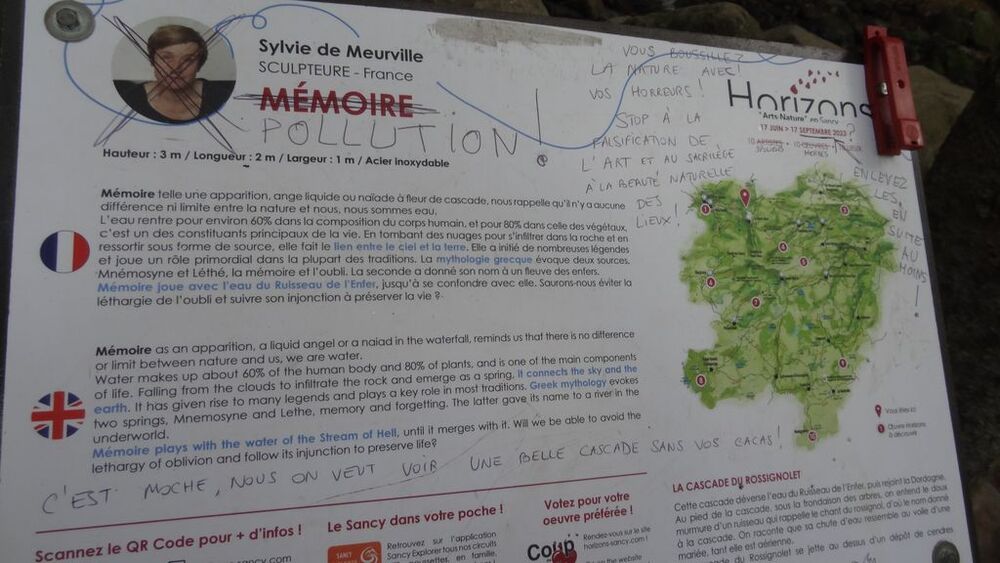 Sylvie de Meurville
SCULPTEURE - France
MÉMOIRE
POLLUTION !
Hauteur : 3 m / Longueur : 2 m / Largeur : 1 m / Acier inoxydable
VOUS BOUSSILLEZ
LA NATURE AVEC
VOS HORREURS !
STOP À LA
FALSIFICATION DE
L'ART ET AU SACRILÈGE
À LA BEAUTÉ NATURELLE
DES
LIEUX !
Horizons
"Arts-Nature" en Sancy
17 JUIN > 17 SEPTEMBRE 2023 ?
ENLEVEZ
LES,
EN
SUITE
AU
MOINS
!
Mémoire telle une apparition, ange liquide ou naïade à fleur de cascade, nous rappelle qu'il n'y a aucune
différence ni limite entre la nature et nous, nous sommes eau.
L'eau rentre pour environ 60% dans la composition du corps humain, et pour 80% dans celle des végétaux,
c'est un des constituants principaux de la vie. En tombant des nuages pour s'infiltrer dans la roche et en
ressortir sous forme de source, elle fait le lien entre le ciel et la terre. Elle a initié de nombreuses légendes
et joue un rôle primordial dans la plupart des traditions. La mythologie grecque évoque deux sources,
Mnémosyne et Léthé, la mémoire et l'oubli. La seconde a donné son nom à un fleuve des enfers.
Mémoire joue avec l'eau du Ruisseau de l'Enfer, jusqu'à se confondre avec elle. Saurons-nous éviter la
léthargie de l'oubli et suivre son injonction à préserver la vie ?
Mémoire as an apparition, a liquid angel or a naiad in the waterfall, reminds us that there is no difference
or limit between nature and us, we are water.
Water makes up about 60% of the human body and 80% of plants, and is one of the main components
of life. Falling from the clouds to infiltrate the rock and emerge as a spring, It connects the sky and the
earth. It has given rise to many legends and plays a key role in most traditions. Greek mythology evokes
two springs, Mnemosyne and Lethe, memory and forgetting. The latter gave its name to a river in the
underworld.
Mémoire plays with the water of the Stream of Hell, until it merges with it. Will we be able to avoid the
lethargy of oblivion and follow its injunction to preserve life?
C'EST MOCHE, NOUS ON VEUT VOIR UNE BELLE CASCADE SANS VOS CACAS !
Vous êtes ici
Œuvre Horizons
à découvrir
Scannez le QR Code pour + d'infos !
Le Sancy dans votre poche !
Retrouvez sur l'application
Sancy Explorer tous nos circuits
Votez pour votre
oeuvre préférée !
Coup
Rendez-vous sur le site
horizons-sancy.com !
LA CASCADE DU ROSSIGNOLET
Cette cascade déverse l'eau du Ruisseau de l'Enfer, puis rejoint la Dordogne.
Au pied de la cascade, sous la frondaison des arbres, on entend le doux
murmure d'un ruisseau qui rappelle le chant du rossignol, d'où le nom donné
à la cascade. On raconte que sa chute d'eau ressemble au voile d'une
mariée, tant elle est aérienne.
du Rossignolet se jette au dessus d'un dépôt de cendres